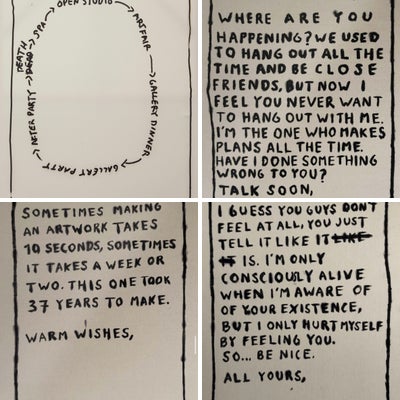 OPEN STUDIO →
ART FAIR →
GALLERY DINNER →
GALLERY PARTY →
AFTER PARTY →
DEAD →
DEATH
SPA →
WHERE ARE YOU
HAPPENING? WE USED
TO HANG OUT ALL THE
TIME AND BE CLOSE
FRIENDS, BUT NOW I
FEEL YOU NEVER WANT
TO HANG OUT WITH ME.
I'M THE ONE WHO MAKES
PLANS ALL THE TIME.
HAVE I DONE SOMETHING
WRONG TO YOU?
TALK SOON,
SOMETIMES MAKING
AN ARTWORK TAKES
10 SECONDS, SOMETIMES
IT TAKES A WEEK OR
TWO. THIS ONE TOOK
37 YEARS TO MAKE.
WARM WISHES,
I GUESS YOU GUYS DON'T
FEEL AT ALL, YOU JUST
TELL IT LIKE IT LIKE
IT IS. I'M ONLY
CONSCIOUSLY ALIVE
WHEN I'M AWARE OF
OF YOUR EXISTENCE,
BUT I ONLY HURT MYSELF
BY FEELING YOU.
SO... BE NICE.
ALL YOURS,